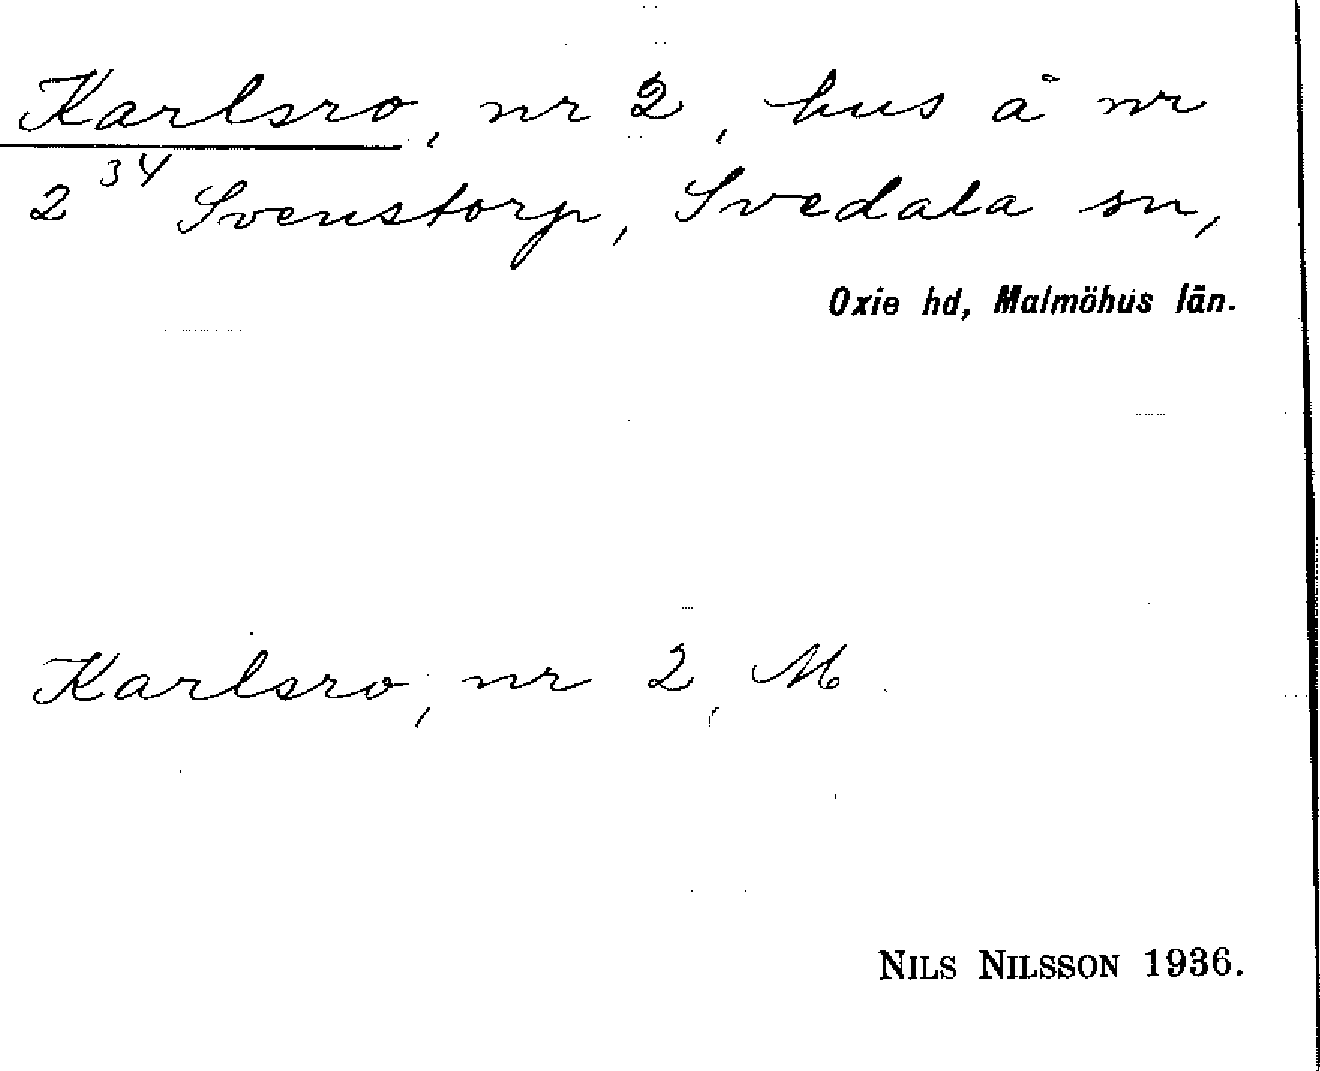 Karlsro, nr 2, hus å nr
2 34 Svenstorp, Svedala sn,
Oxie hd, Malmöhus län.
Karlsro, nr 2, M
NILS NILSSON 1936.